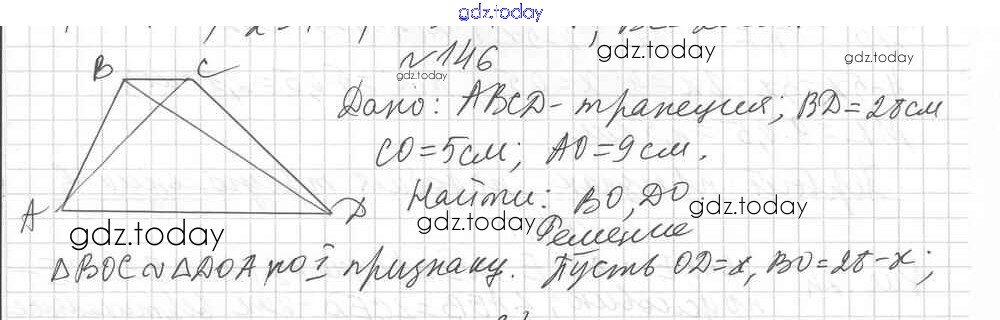 gdz.today
№146
gdz.today
gdz.today
gdz.today
B C
Дано: ABCD - трапеция; BD = 28см
CO = 5см; AO = 9см.
Найти: BO, DO
A D
gdz.today
gdz.today
gdz.today
Решение
△BOC ~ △DOA по I признаку. Пусть OD = x, BO = 28 - x;